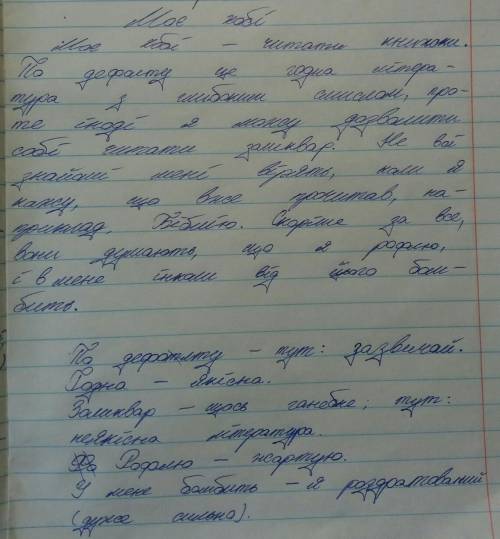 Моє хобі
Моє хобі – читати книжки.
По дефолту це годна літера-
тура з глибоким смислом, про-
те іноді я можу дозволити
собі читати зашквар. Не всі
знайомі мені вірять, коли я
кажу, що вже прочитав, на-
приклад, Біблію. Скоріше за все,
вони думають, що я рофлю,
і в мене інколи від цього бом-
бить.
По дефолту – тут: зазвичай.
Годна – якісна.
Зашквар – щось ганебне; тут:
неякісна література.
Рофлю – жартую.
У мене бомбить – я роздратований
(дуже сильно).